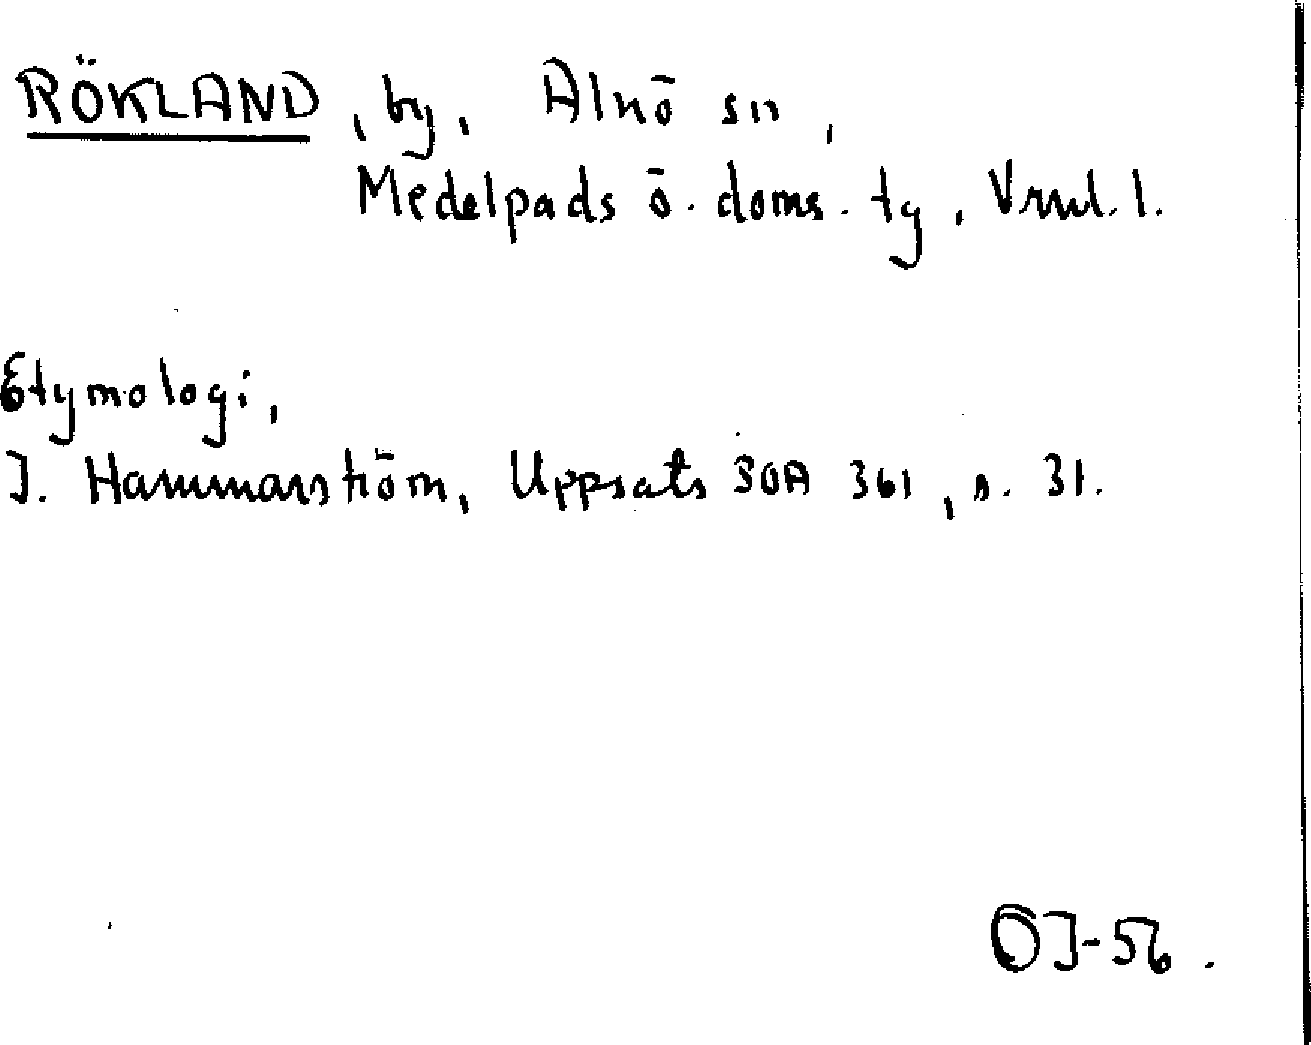 RÖKLAND, by, Alnö sn,
Medelpads ö. doms. tg, Vrnl. l.
Etymologi,
J. Hammarström, Uppsats SOA 361, s. 31.
OJ-56.